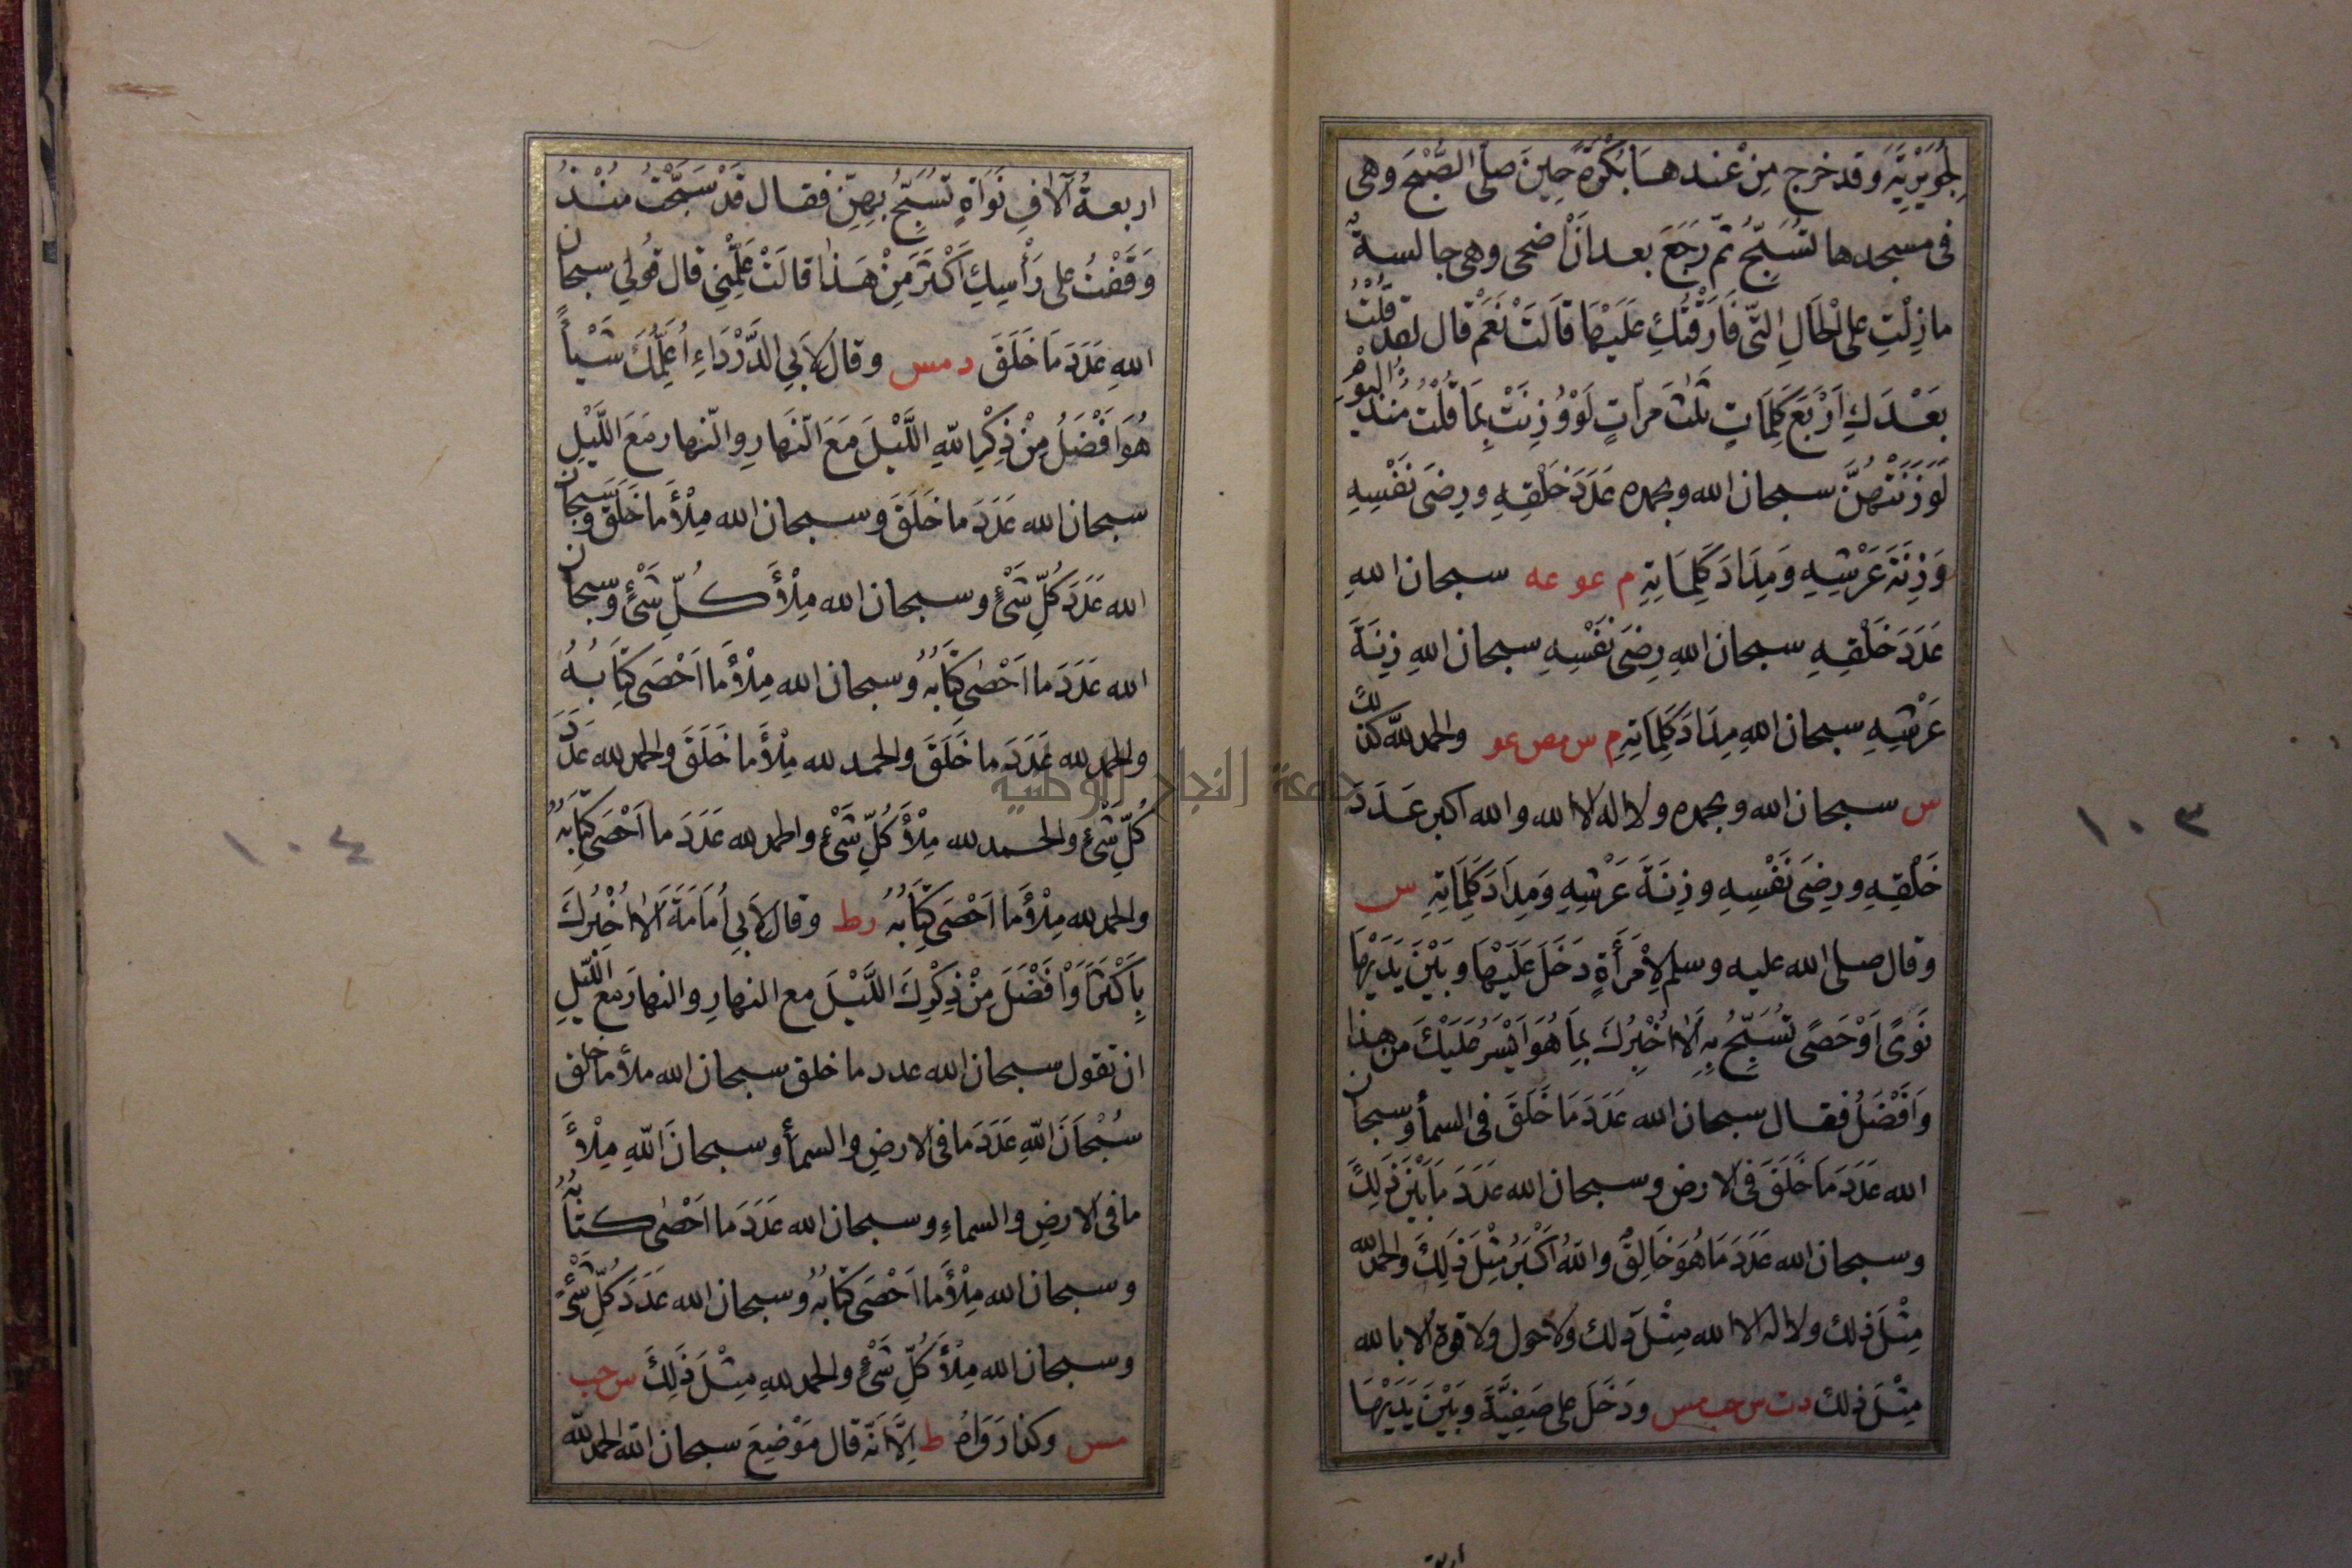 لِجُوَيْرِيَةَ وَقد خرج مِنْ عندهَا بُكْرَةً حِينَ صلى الصُّبْحَ وهى
فى مسجدها تُسَبِّحُ ثمّ رَجَعَ بعد اَنْ اضحى وهى جالسةٌ
ما زِلْتِ على الْحَالِ الَّتى فَارَقْتُكِ عَلَيْهَا قَالَتْ نَعَمْ قال لقد قُلْتُ
بَعْدَكِ اَرْبَعَ كَلِمَاتٍ ثلٰثَ مَرّاتٍ لَوْ وُزِنَتْ بِمَا قُلْتِ مُنْذُ الْيَوْمِ
لَوَزَنَتْهُنَّ سبحان الله وبحمده عَدَدَ خَلْقِهِ ورِضَى نَفْسِهِ
وَزِنَةَ عَرْشِهِ وَمِدَادَ كَلِمَاتِهِ م عو عه سبحان اللهِ
عَدَدَ خَلْقِهِ سبحان اللهِ رِضَى نَفْسِهِ سبحان اللهِ زِنَةَ
عَرْشِهِ سبحان اللهِ مِدَادَ كَلِمَاتِهِ م س مص عو والحمد للّٰه كذلك
س سبحان الله وبحمده ولا اله الا الله والله اكبر عَدَدَ
خَلْقِهِ ورِضَى نَفْسِهِ وزِنَةَ عَرْشِهِ وَمِدَادَ كَلِمَاتِهِ س
وقال صلى الله عليه وسلم لِامْرَأَةٍ دَخَلَ عَلَيْهَا وبَيْنَ يَدَيْهَا
نَوًى اَوْ حَصًى تُسَبِّحُ بِهِ اَلَا اُخْبِرُكَ بِمَا هُوَ اَيْسَرُ عَلَيْكَ من هذا
وَاَفْضَلُ فقال سبحان الله عَدَدَ مَا خَلَقَ فى السمأ وسبحان
الله عَدَدَ مَا خَلَقَ فى الارض وسبحان الله عَدَدَ مَا بَيْنَ ذَلِكَ
وسبحان الله عَدَدَ مَا هُوَ خَالِقٌ واللهُ اَكْبَرُ مِثْلَ ذَلِكَ والحمد لله
مِثْلَ ذلك ولا اله الا الله مِثْلَ ذلك ولا حول ولا قوة الا بالله
مِثْلَ ذلك د ت س حب مس ودَخَلَ على صَفِيَّةَ وبَيْنَ يَدَيْهَا
١٠٣
اربعةُ آلافِ نَوَاةٍ تُسَبِّحُ بِهِنّ فقال قَدْ سَبَّحْتُ مُنْذُ
وَقَفْتُ على رَأْسِكِ اَكْثَرَ مِنْ هَذَا قالَتْ عَلِّمْنِي قال قُولِي سبحان
اللهِ عَدَدَ مَا خَلَقَ د مس وقال لِاَبِي الدَّرْدَاءِ اُعَلِّمُكَ شَيْأً
هُوَ اَفْضَلُ مِنْ ذِكْرِ اللّهِ اللَّيْلَ مَعَ النَّهارِ والنّهار مَعَ اللَّيْلِ
سبحان الله عَدَدَ ما خَلَقَ وسبحان الله مِلْأَ مَا خَلَقَ وسبحان
الله عَدَدَ كُلِّ شَيْءٍ وسبحان الله مِلْأَ كُلِّ شَيْءٍ وسبحان
الله عَدَدَ ما اَحْصٰى كِتَابُهُ وسبحان الله مِلْأَ ما اَحْصَى كِتَابُهُ
والحمد لله عَدَدَ ما خَلَقَ والحمد لله مِلْأَ ما خَلَقَ والحمد لله عَدَدَ
كُلِّ شَيْءٍ والحمد لله مِلْأَ كُلِّ شَيْءٍ والحمد لله عَدَدَ ما اَحْصَى كِتَابُهُ
والحمد لله مِلْأَ ما اَحْصَى كِتَابُهُ ر ط وقال لِاَبِي اُمَامَةَ اَلَا اُخْبِرُكَ
بِاَكْثَرَ وَاَفْضَلَ مِنْ ذِكْرِكَ اللَّيْلَ مع النهارِ والنهارَ مع اللَّيْلِ
ان تقول سبحان الله عدد ما خلق سبحان الله ملأ ما خلق
سُبْحَانَ اللّهِ عَدَدَ ما فى الارضِ والسمأ وسبحانَ اللّهِ مِلْأَ
ما فى الارضِ والسماءِ وسبحان الله عَدَدَ مَا اَحْصٰى كتابُهُ
وسبحان الله مِلْأَ مَا اَحْصَى كِتَابُهُ وسبحان الله عَدَدَ كُلِّ شَيْءٍ
وسبحان الله مِلْأَ كُلِّ شَيْءٍ والحمد للهِ مِثْلَ ذَلِكَ س حب
مس وكذا رَوَاهُ ط اِلَّا اَنَّهُ قال مَوْضِعَ سبحان الله الحمد للّٰه
١٠٤
جامعة النجاح الوطنية